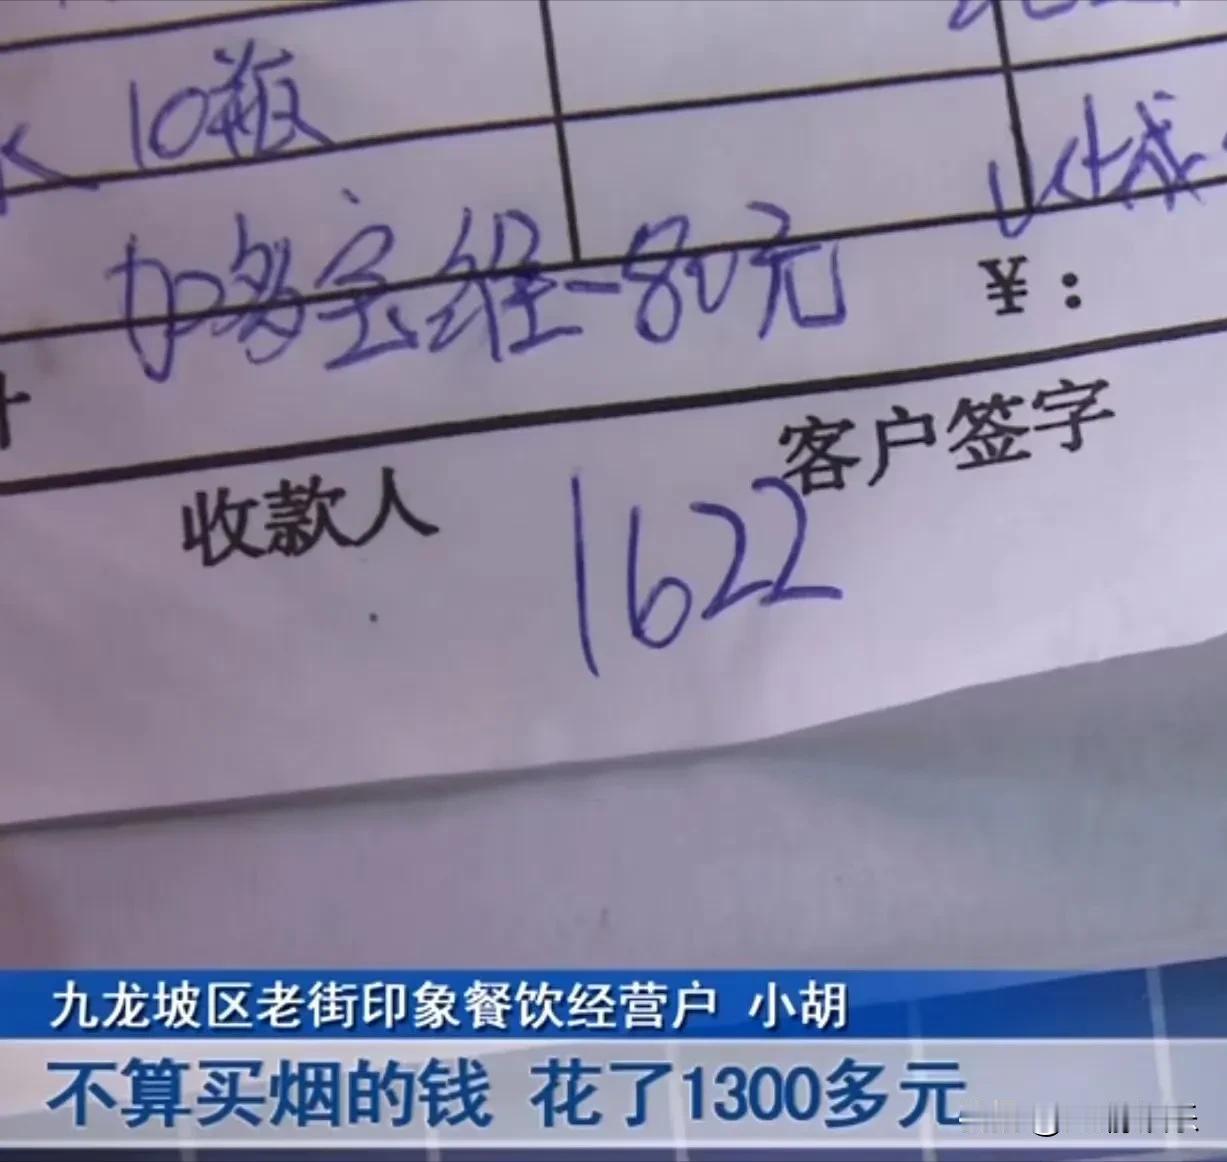 10瓶
加多宝 维-80元
¥：
收款人
客户签字
1622
九龙坡区老街印象餐饮经营户 小胡
不算买烟的钱 花了1300多元